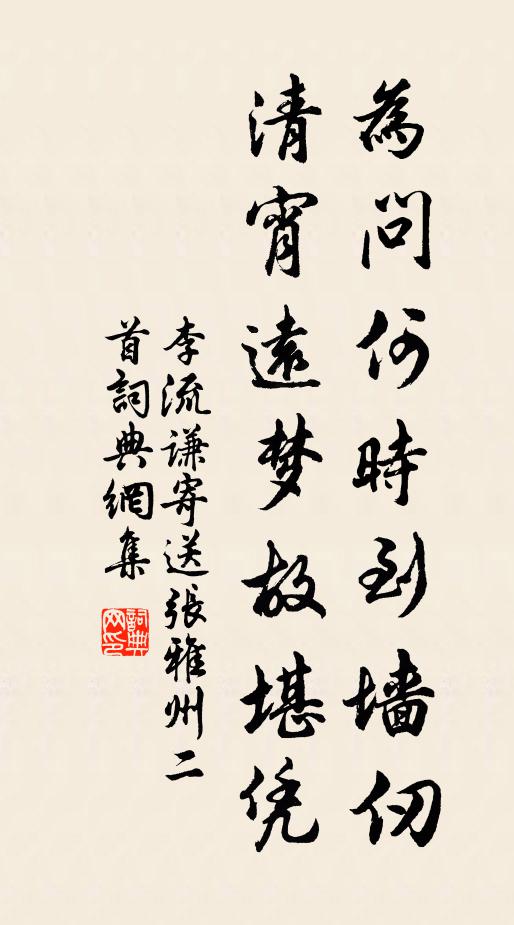 為問何時到墙仞
清宵遠梦故堪凭
李流謙寄送張雅州二
首詞典網集
詞典
网印